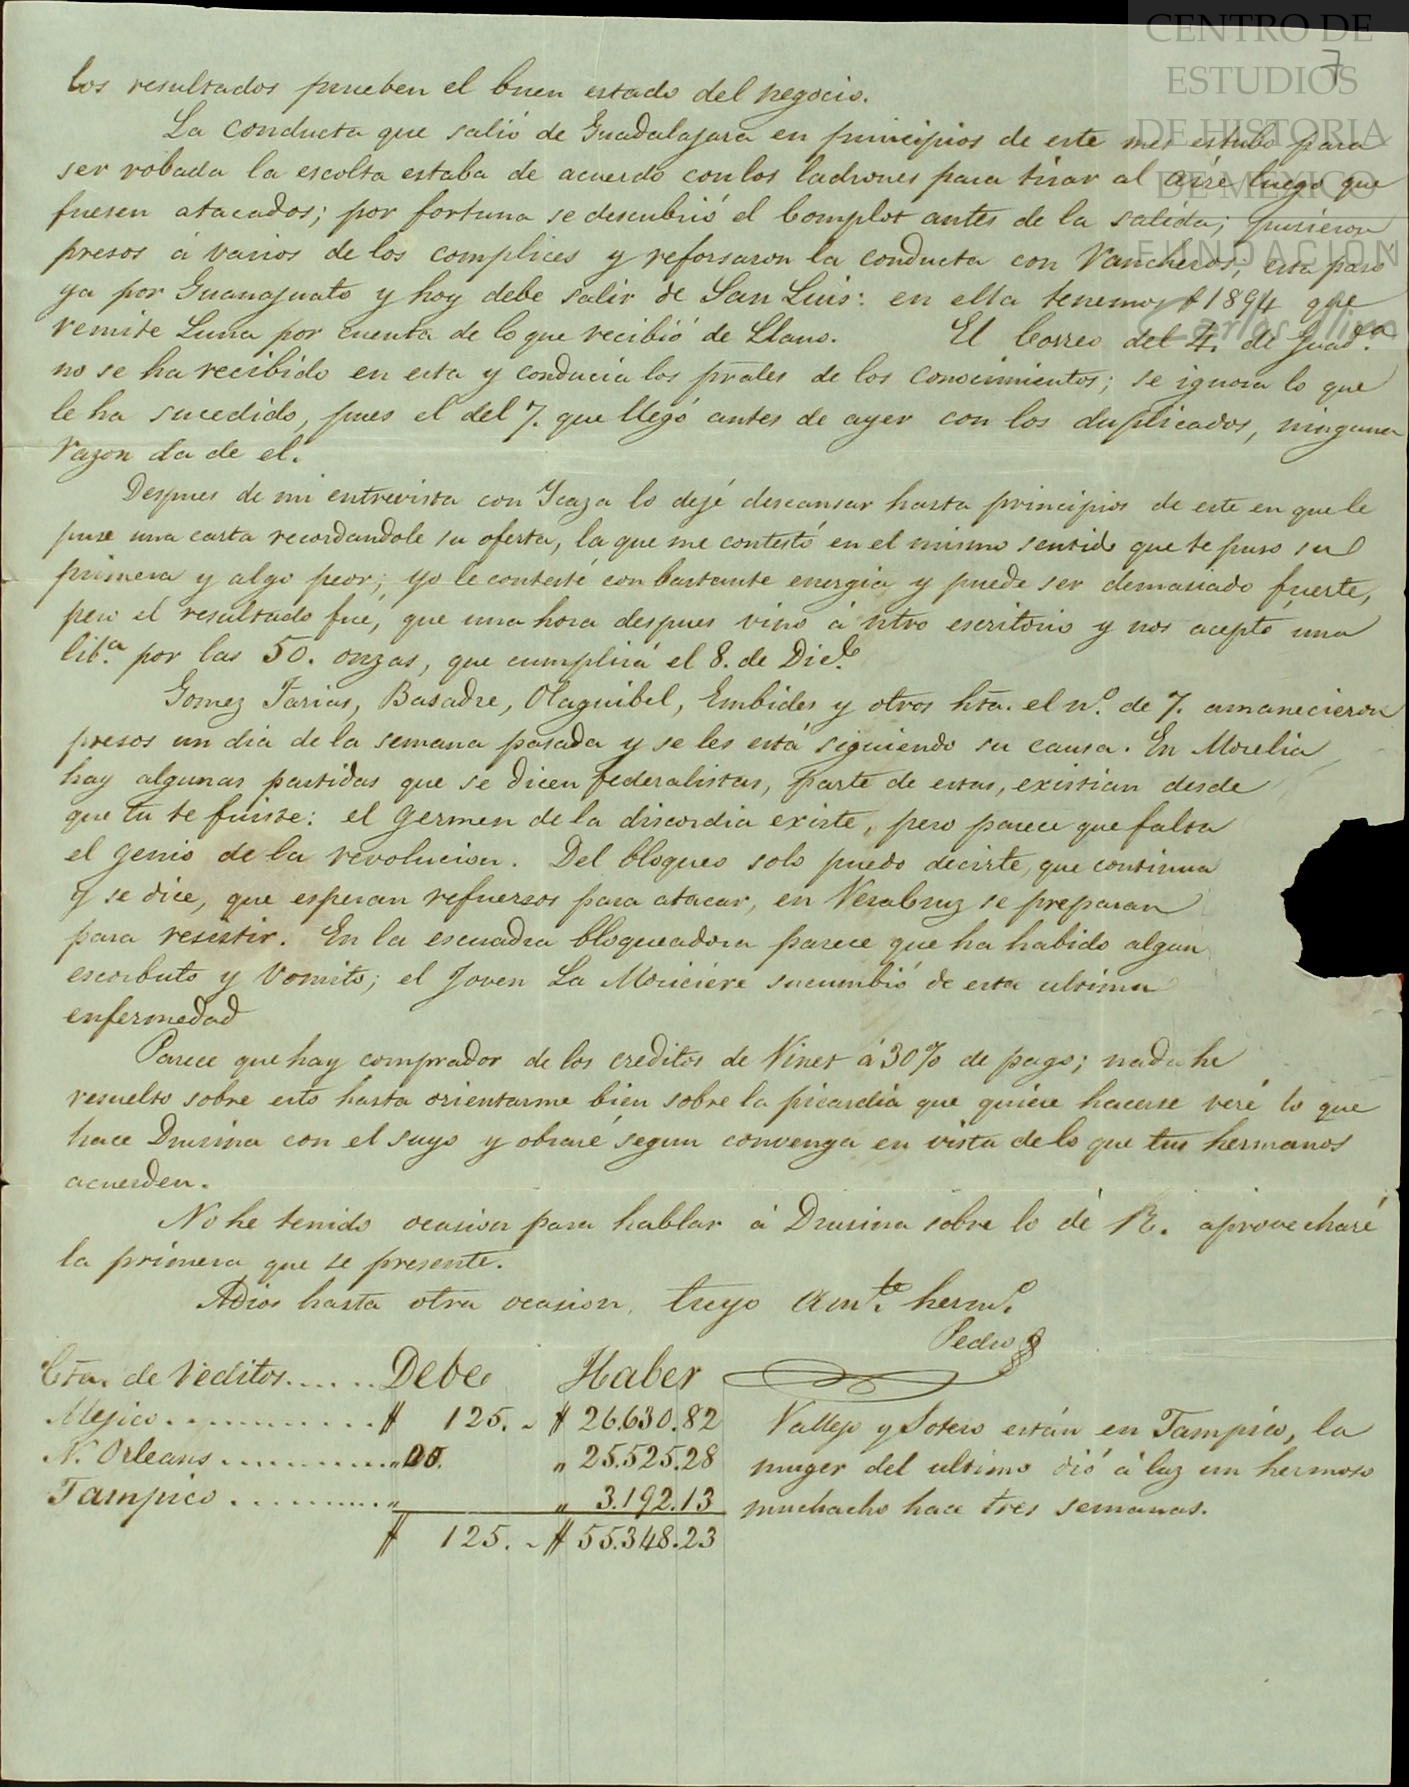 CENTRO DE
ESTUDIOS
DE HISTORIA
DE MÉXICO
FUNDACIÓN
Carlos Slim
7
los resultados prueben el buen estado del negocio.
La conducta que salió de Guadalajara en principios de este mes estubo para
ser robada la escolta estaba de acuerdo con los ladrones para tirar al aire luego que
fuesen atacados; por fortuna se descubrió el complot antes de la salida; pusieron
presos á varios de los complices y reforsaron la conducta con Rancheros; esta paso
ya por Guanajuato y hoy debe salir de San Luis: en ella tenemos $1894 que
remite Luna por cuenta de lo que recibió de Llano. El Correo del 4. de Guad.a
no se ha recibido en esta y conducia los prales de los conocimientos; se ignora lo que
le ha sucedido, pues el del 7. que llegó antes de ayer con los duplicados, ninguna
razon da de el.
Despues de mi entrevista con Icaza lo dejé descansar hasta principios de este en que le
puse una carta recordandole su oferta, la que me contestó en el mismo sentido que te puso su
primera y algo peor; yo le contesté con bastante energia y puede ser demasiado fuerte,
pero el resultado fué, que una hora despues vino á ntro escritorio y nos aceptó una
lib.a por las 50. onzas, que cumplirá el 8. de Dic.e
Gomez Farias, Basadre, Olaguibel, Embides y otros hta. el n.o de 7. amanecieron
presos un dia de la semana pasada y se les está siguiendo su causa. En Morelia
hay algunas partidas que se dicen federalistas, parte de estas, existian desde
que tu te fuiste: el germen de la discordia existe, pero parece que falta
el genio de la revolucion. Del bloqueo solo puedo decirte, que continua
y se dice, que esperan refuersos para atacar, en VeraCruz se preparan
para resestir. En la escuadra bloqueadora parece que ha habido algun
escorbuto y Vomito; el Joven La Moriciére sucumbió de esta ultima
enfermedad
Parece que hay comprador de los creditos de Vinet á 30% de pago; nada he
resuelto sobre esto hasta orientarme bien sobre la picardia que quiere hacerse veré lo que
hace Drusina con el suyo y obraré segun convenga en vista de lo que tus hermanos
acuerden.
No he tenido ocasion para hablar á Drusina sobre lo de R. aprovecharé
la primera que se presente.
Adios hasta otra ocasion, tuyo am.te herm.o
Pedro
Cta. de Reditos..... Debe Haber
Mejico............ $ 125. „ $ 26.630.82
N. Orleans............ „ 00. „ 25.525.28
Tampico............ „ „ 3.192.13
$ 125. „ $ 55.348.23
Vallejo y Sotero están en Tampico, la
muger del ultimo dió á luz un hermoso
muchacho hace tres semanas.